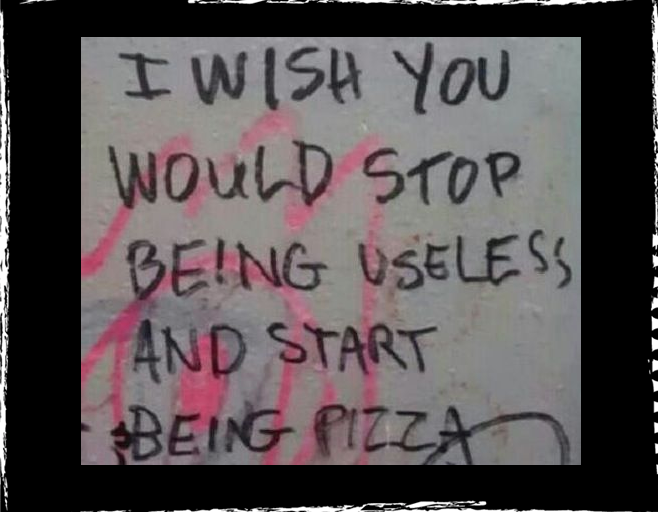 I WISH YOU
WOULD STOP
BEING USELESS
AND START
BEING PIZZA